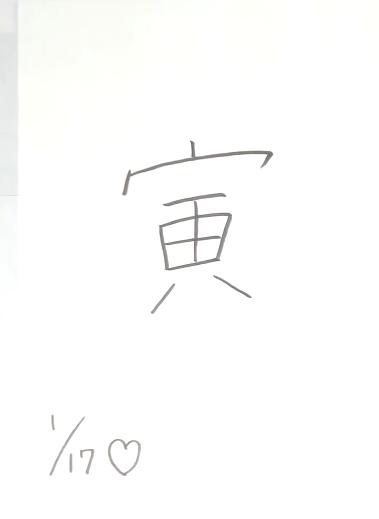 寅
1/17♡